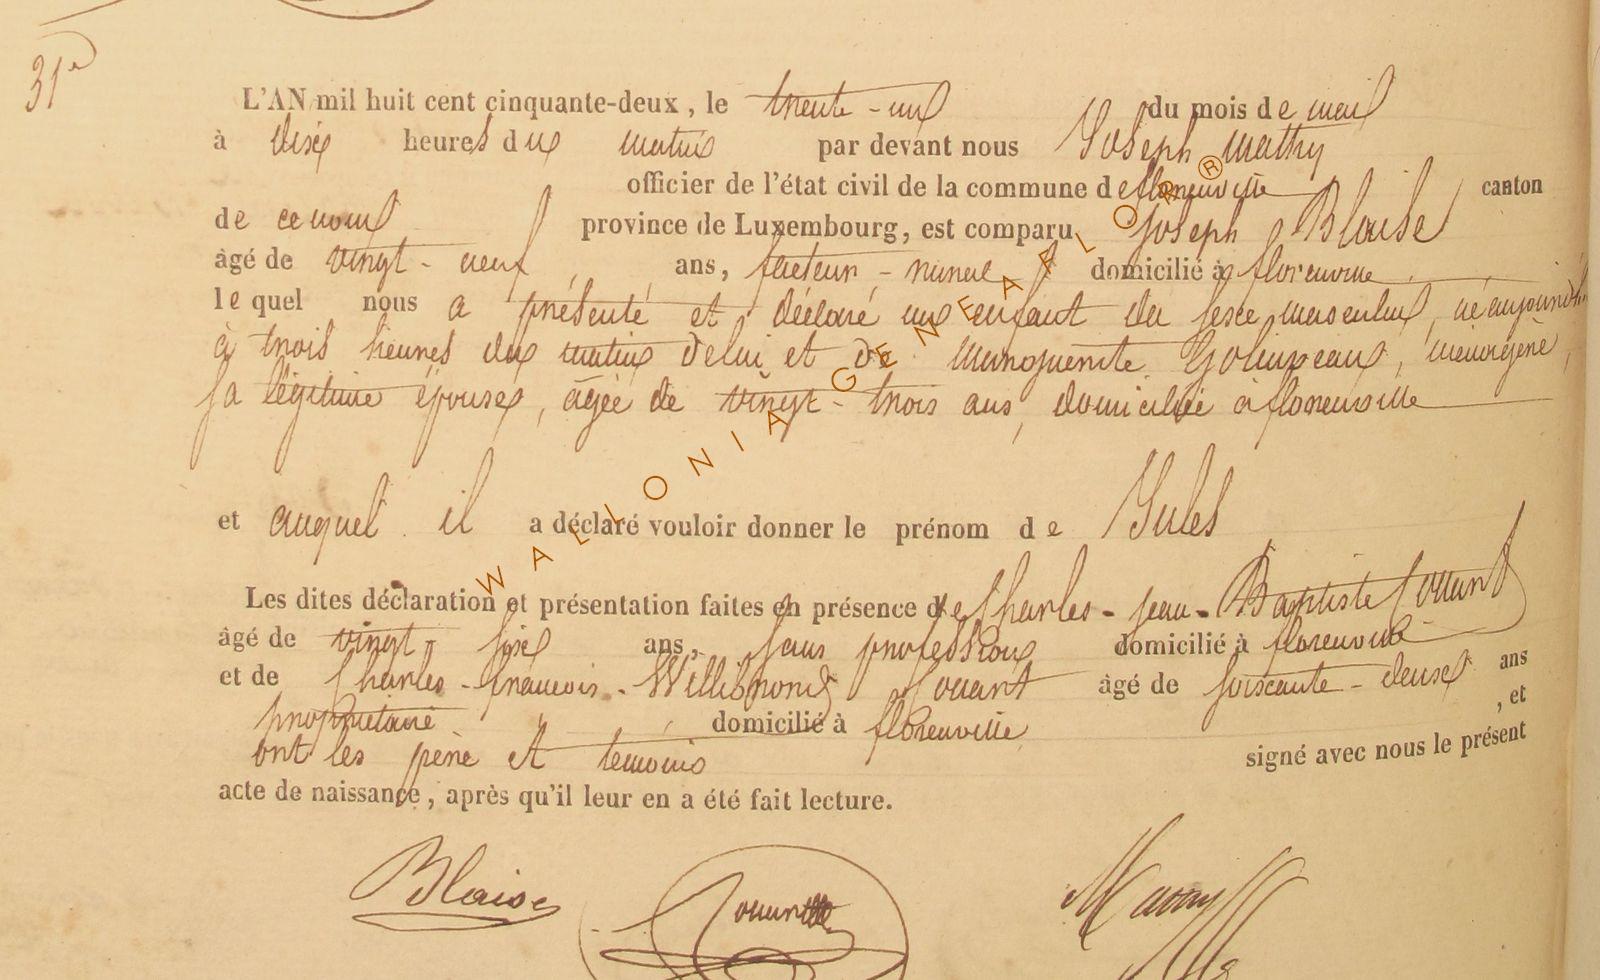 31e
L'AN mil huit cent cinquante-deux, le trente-un du mois de mai
à dix heures du matin par devant nous Joseph Mathy
officier de l'état civil de la commune de florenville canton
de ce nom province de Luxembourg, est comparu Joseph Blaise
âgé de vingt-neuf ans, facteur-rural domicilié à florenville
lequel nous a présenté et déclaré un enfant du sexe masculin, né aujourd'hui
à trois heures du matin de lui et de Marguerite Golinveaux, ménagère,
sa légitime épouse, âgée de vingt-trois ans, domiciliée à florenville
et auquel il a déclaré vouloir donner le prénom de Jules
Les dites déclaration et présentation faites en présence de Charles-Jean-Baptiste
âgé de vingt-six ans, sans profession domicilié à florenville
et de Charles-françois-Willibrord âgé de soixante-deux ans
propriétaire domicilié à florenville, et
ont les père et témoins signé avec nous le présent
acte de naissance, après qu'il leur en a été fait lecture.
Blaise
WALLONIA GENEAFLOR®